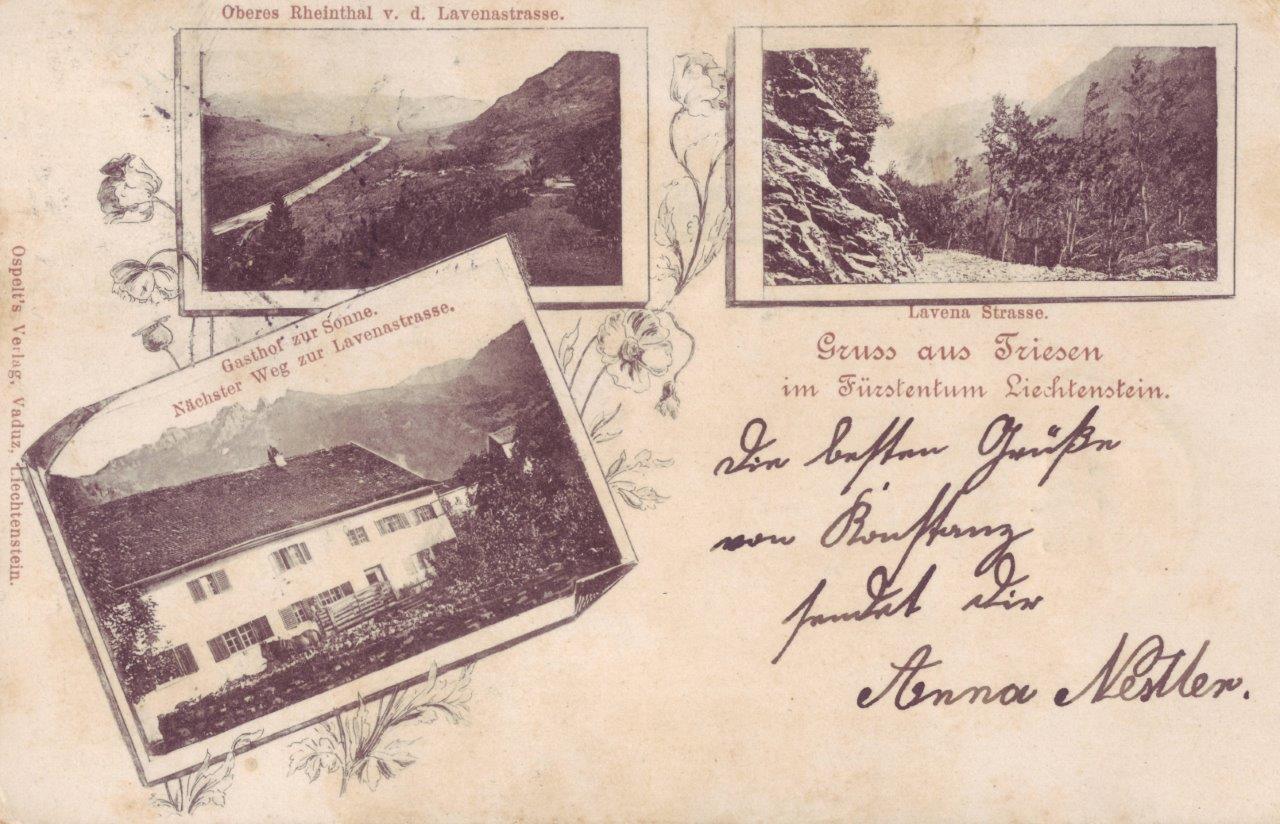 Oberes Rheinthal v. d. Lavenastrasse.
Lavena Strasse.
Gasthof zur Sonne.
Nächster Weg zur Lavenastrasse.
Gruss aus Triesen
im Fürstentum Liechtenstein.
Die besten Grüße
von Konstanz
sendet Dir
Anna Nestler.
Ospelt's Verlag, Vaduz, Liechtenstein.